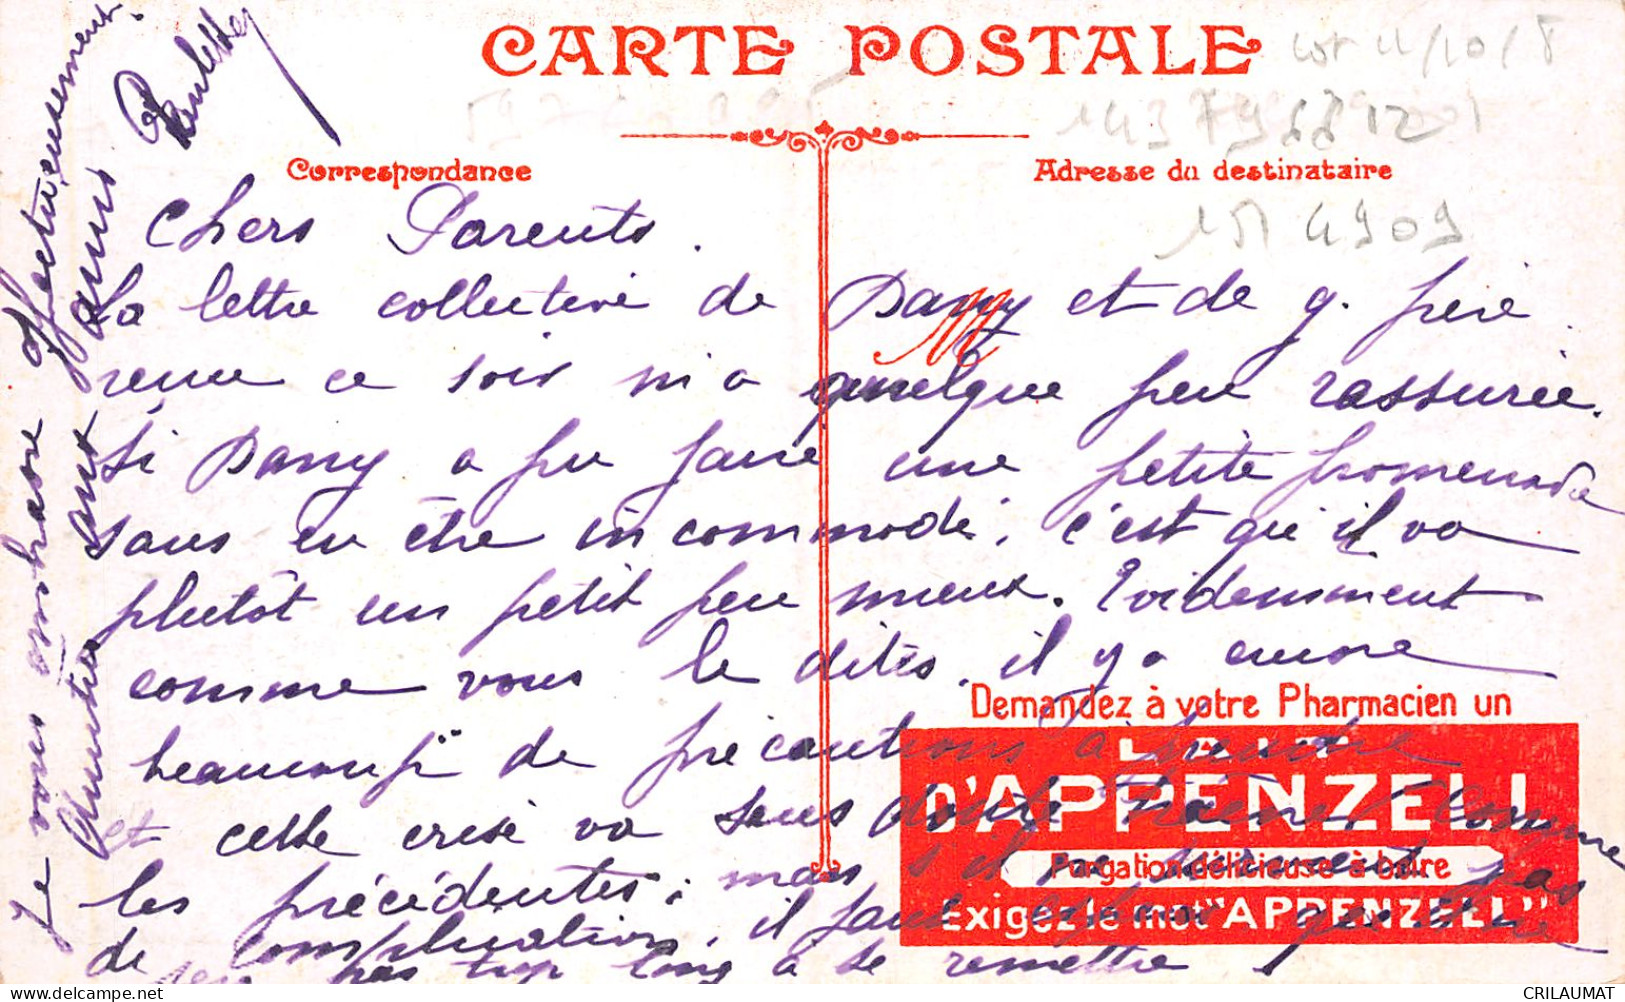 CARTE POSTALE
Correspondance
Adresse du destinataire
Chers Parents.
La lettre collective de Dany et de g. père
reçue ce soir m'a quelque peu rassurée.
Si Dany a pu faire une petite promenade
sans en être incommodé, c'est qu'il va
plutôt un petit peu mieux. Evidemment
comme vous le dites, il y a encore
beaucoup de précautions à prendre
et cette crise va sans doute traîner comme
les précédentes; mais s'il ne survient pas
de complication, il faut espérer que
pas trop long à se remettre
Je vous embrasse affectueusement.
Amitiés aux amis
Paulette
Demandez à votre Pharmacien un
LAIT
D'APPENZELL
Purgation délicieuse à boire
Exigez le mot "APPENZELL"
4909
CRILAUMAT